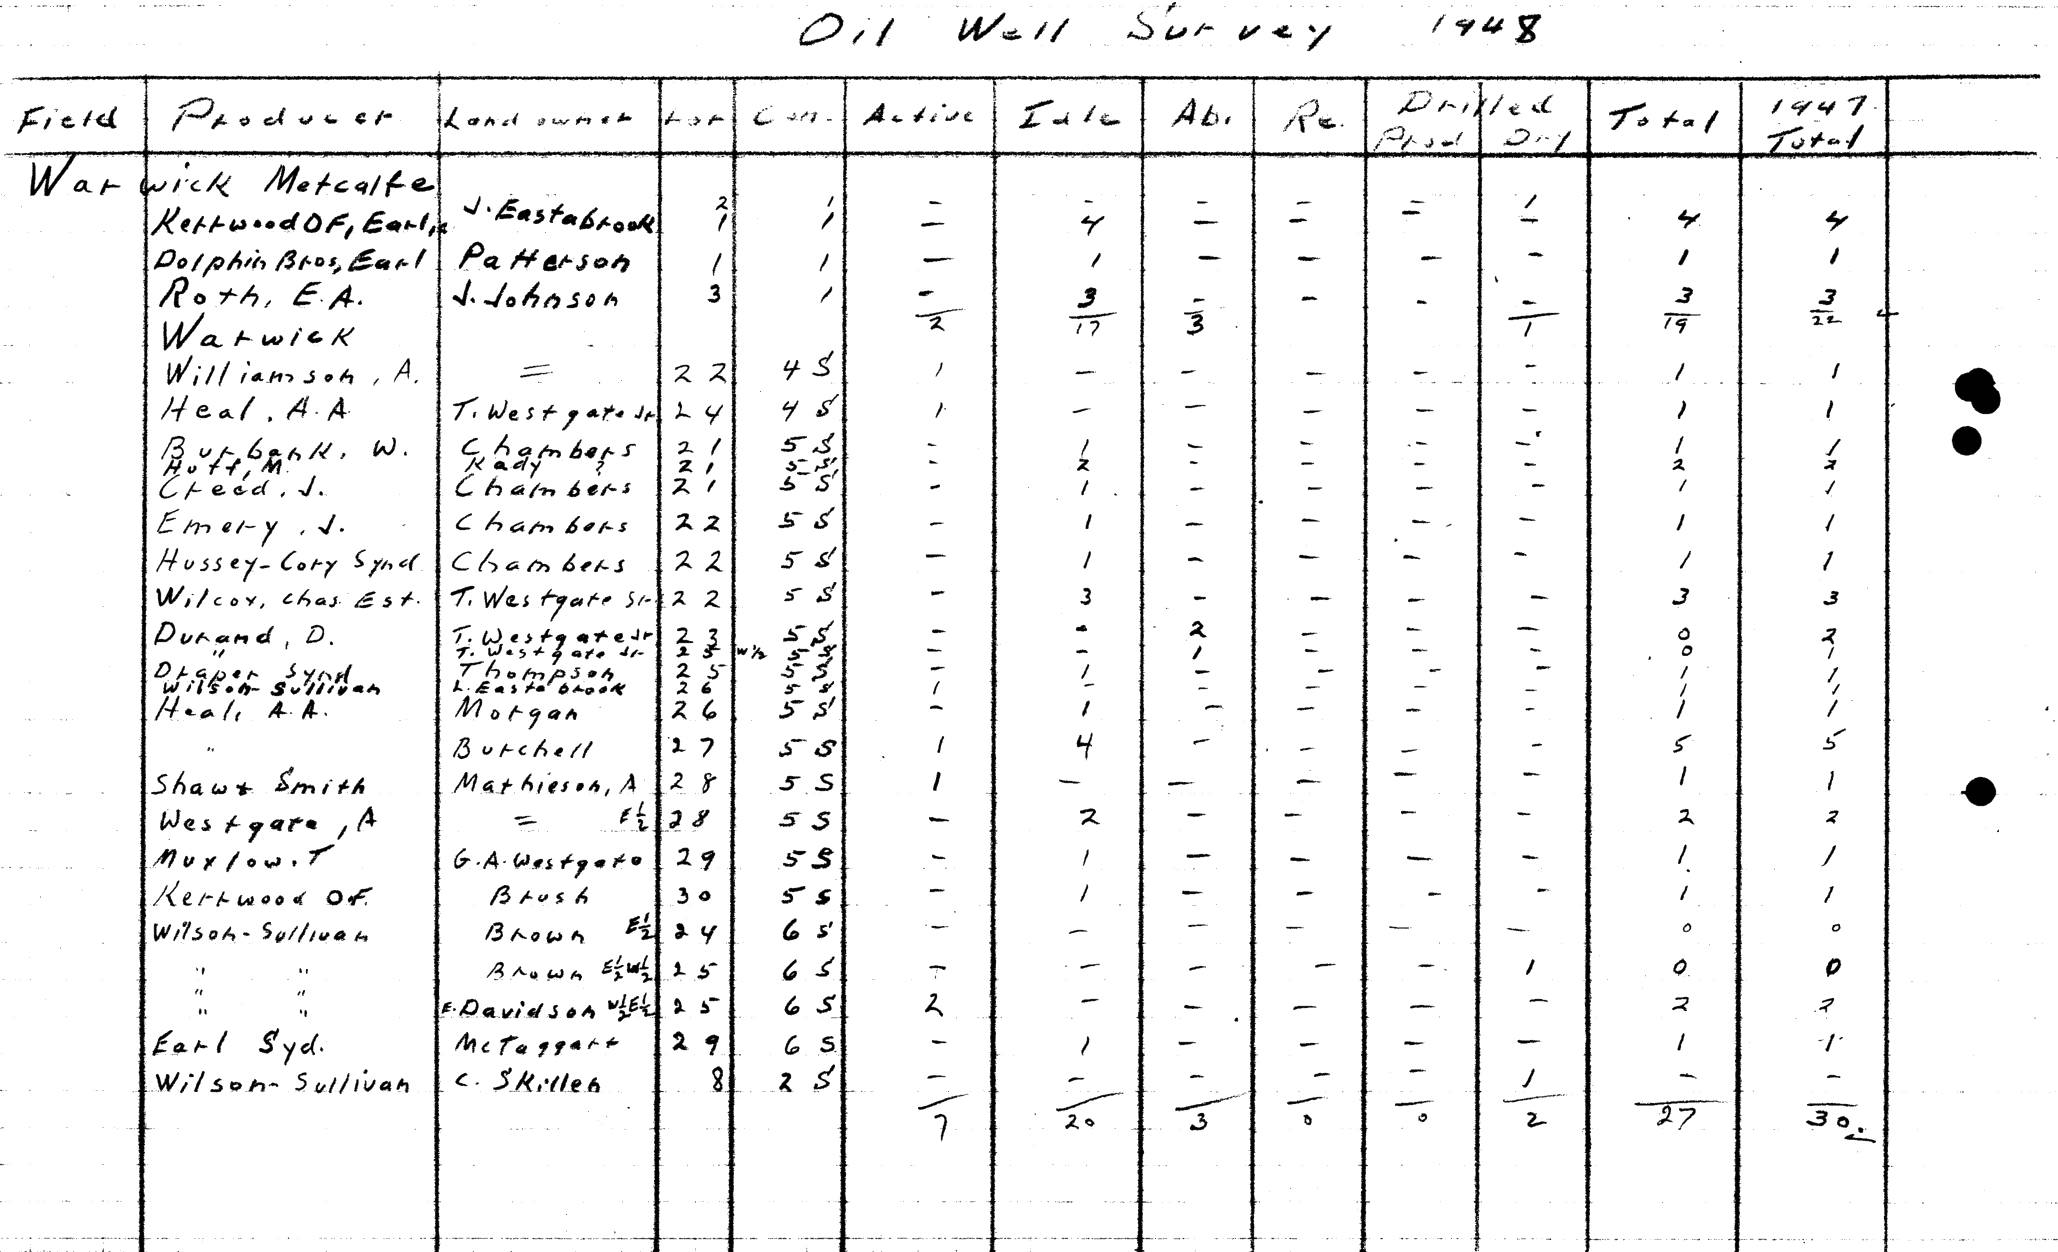 Oil Well Survey 1948
Field Producer Landowner Lot Con. Active Idle Ab. Re. Drilled Total 1947
Prod Dry Total
Warwick Metcalfe
2 1 - - - - = 1
Kerrwood OF, Earl, J. Eastabrook 1 1 — 4 — — - — 4 4
Dolphin Bros, Earl Patterson 1 1 — 1 — — — — 1 1
Roth, E.A. J. Johnson 3 1 - 3 - - - - 3 3
2 17 3 1 19 22
Warwick
Williamson, A. = 22 4 S 1 — — — — — 1 1
Heal, A.A T. Westgate Jr 24 4 S 1 — — — — — 1 1
Burbank, W. Chambers 21 5 S - 1 - - - - 1 1
Huff, M. Kady ? 21 5 S - 2 - - - - 2 2
Creed, J. Chambers 21 5 S - 1 - - - - 1 1
Emery, J. Chambers 22 5 S - 1 - - - - 1 1
Hussey-Cory Synd Chambers 22 5 S - 1 - - - - 1 1
Wilcox, Chas. Est. T. Westgate Sr 22 5 S - 3 - - - - 3 3
Durand, D. T. Westgate Jr 23 5 S - - 2 - - - 0 2
" T. Westgate Jr 25 W½ 5 S - - 1 - - - 0 1
Draper Synd Thompson 25 5 S - 1 - - - - 1 1
Wilson-Sullivan L. Eastabrook 26 5 S 1 - - - - - 1 1
Heal, A.A. Morgan 26 5 S - 1 - - - - 1 1
" Burchell 27 5 S 1 4 - - - - 5 5
Shaw & Smith Mathieson, A 28 5 S 1 — — — — — 1 1
Westgate, A = E½ 28 5 S — 2 — — — — 2 2
Muxlow, T G.A. Westgate 29 5 S - 1 — — — — 1 1
Kerrwood OF. Brush 30 5 S - 1 — — - - 1 1
Wilson-Sullivan Brown E½ 24 6 S - - - - - - 0 0
" " Brown E½W½ 25 6 S - - - - - 1 0 0
" "
" " E. Davidson W½E½ 25 6 S 2 - - - - - 2 2
Earl Syd. McTaggart 29 6 S - 1 - - - - 1 1
Wilson-Sullivan C. Skillen 8 2 S - - - - - 1 - -
7 20 3 0 0 2 27 30.